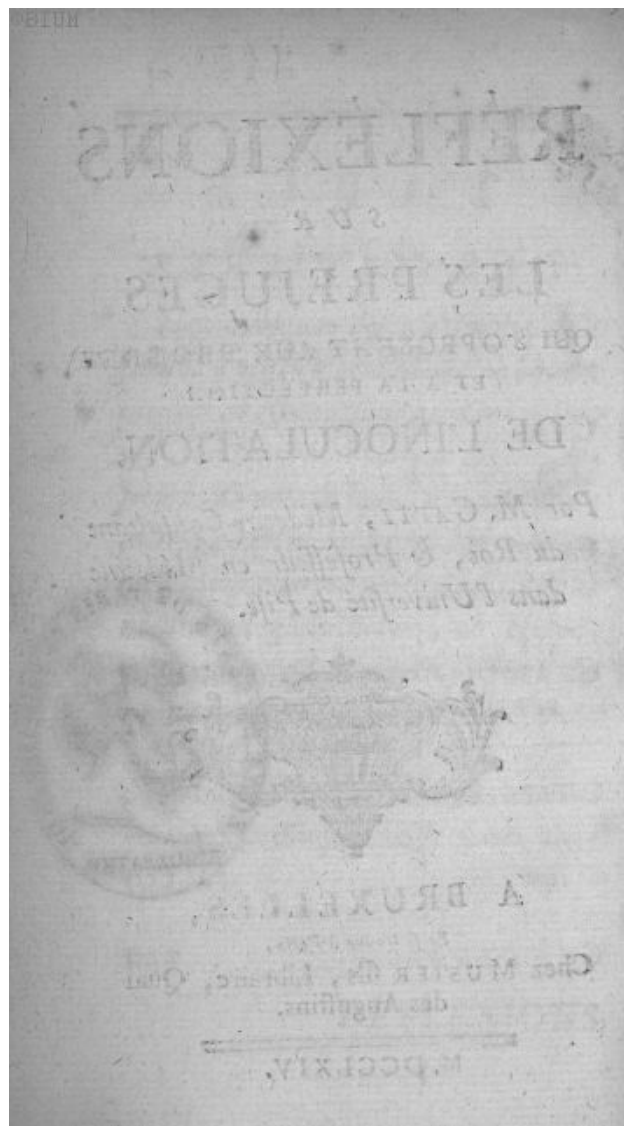 ©BIUM
REFLEXIONS
SUR
LES PREJUGES
QUI S'OPPOSENT AUX PROGRÈS
ET A LA PERFECTION
DE L'INOCULATION.
Par M. GATTI, Médecin Consultant
du Roi, & Professeur en Médecine
dans l'Université de Pise.
A BRUXELLES,
Chez MUSIER fils, Libraire, Quai
des Augustins.
M.DCCLXIV.